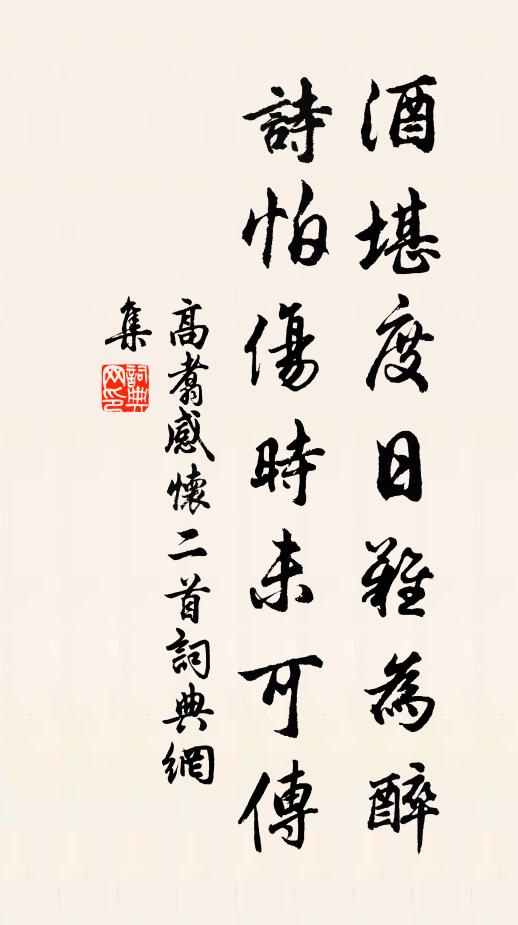 酒堪度日難為醉
詩怕傷時未可傳
高翥感懷二首詞典網
集
詞典網印